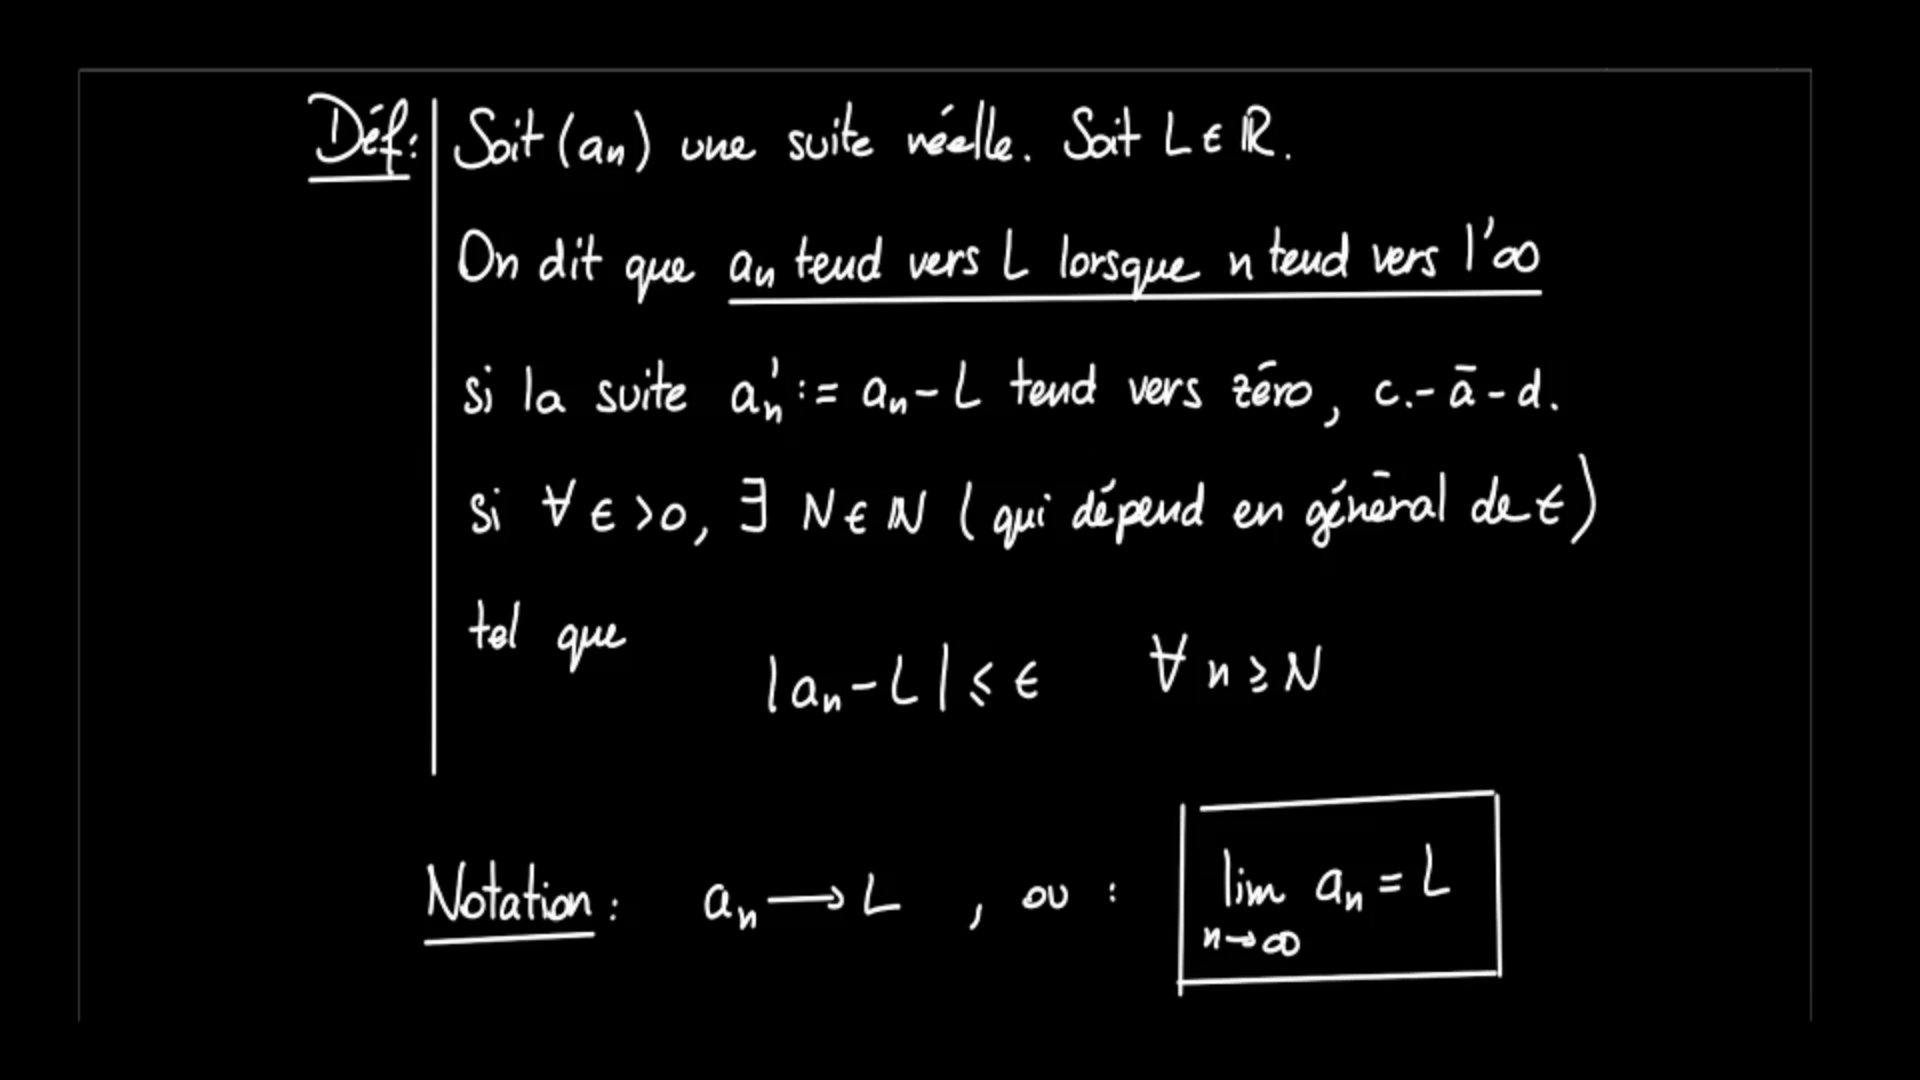 Déf: Soit (aₙ) une suite réelle. Soit L ∈ ℝ.
On dit que aₙ tend vers L lorsque n tend vers l'∞
si la suite aₙ' := aₙ - L tend vers zéro, c.-à-d.
si ∀ ϵ > 0, ∃ N ∈ ℕ (qui dépend en général de ϵ)
tel que
|aₙ - L| ⩽ ϵ ∀ n ⩾ N
Notation : aₙ ⟶ L , ou : lim aₙ = L
n→∞